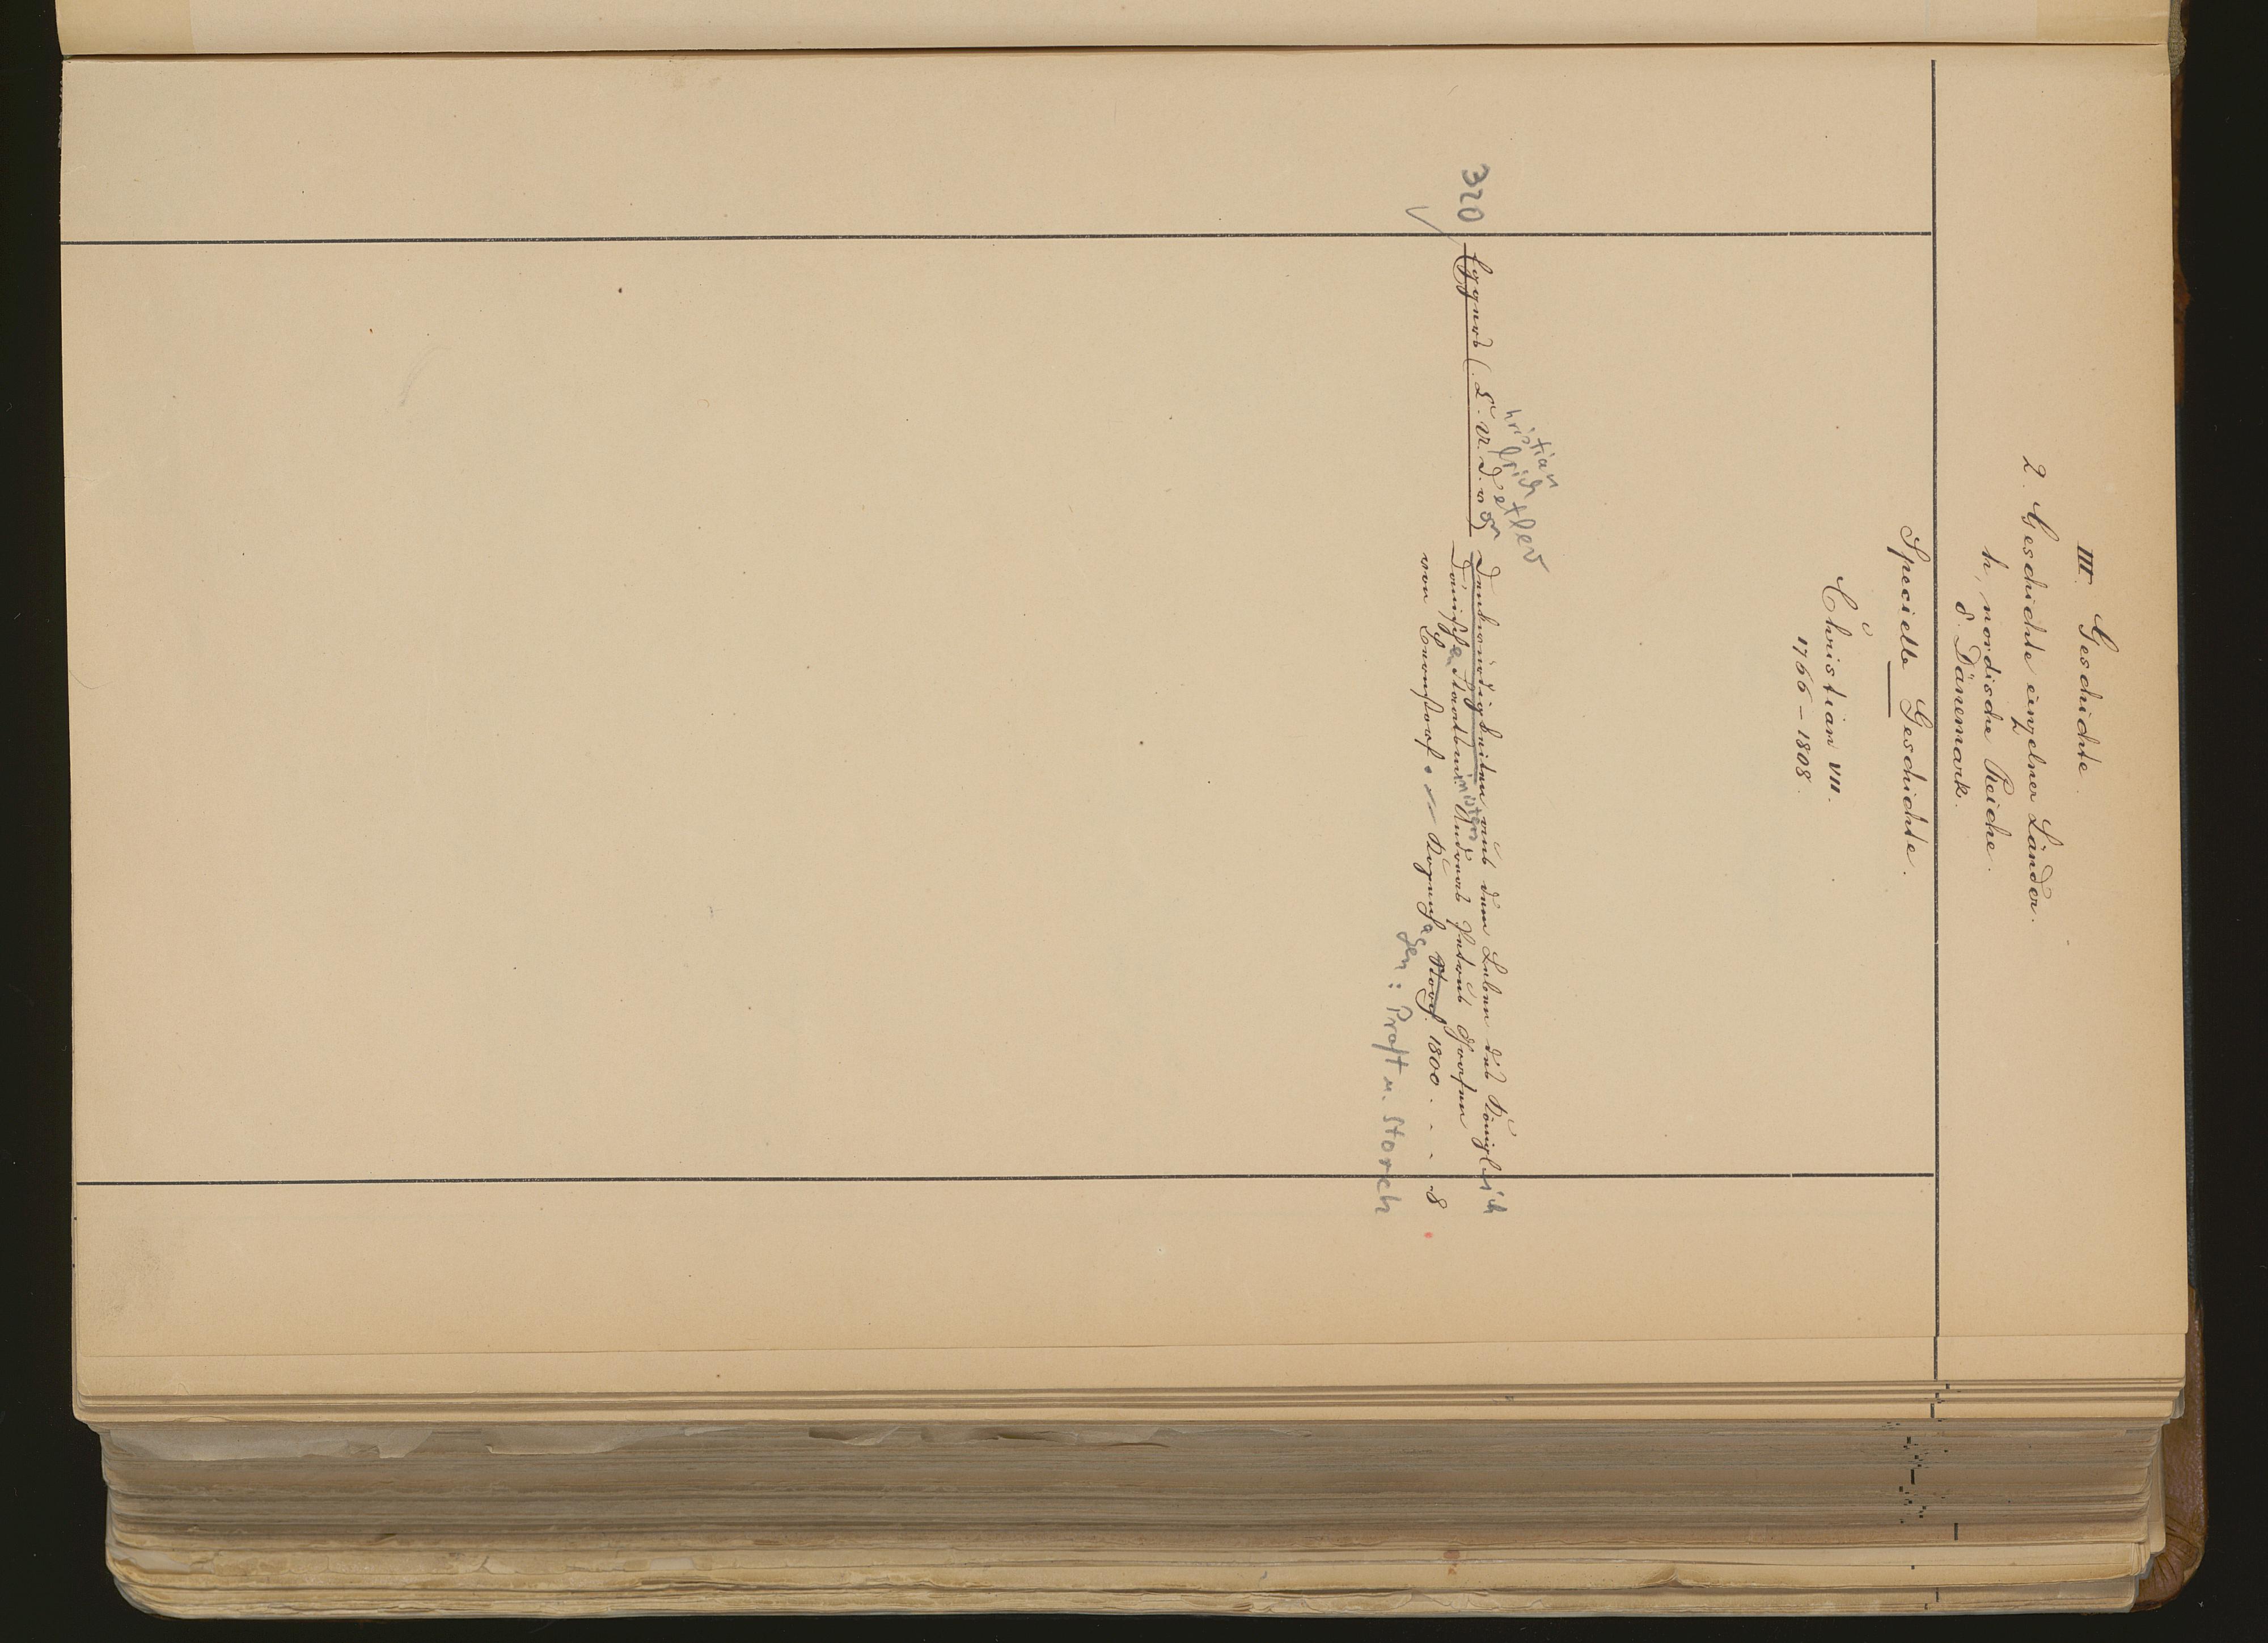 III. Geschichte.
2. Geschichte einzelner Länder.
h, nordische Reiche.
δ. Dänemark.
Specielle Geschichte.
Christian VII.
1766 – 1808.
hristian
lrich
etlev
320 Eggers (C. U. D. von) Denkwürdigkeiten aus dem Leben des Königlich
Dänischen Staatsministers Andreas Petrus Grafen
von Bernstorf. – Kopenhagen: Storch. 1800. - - 8
Praft u. Storch